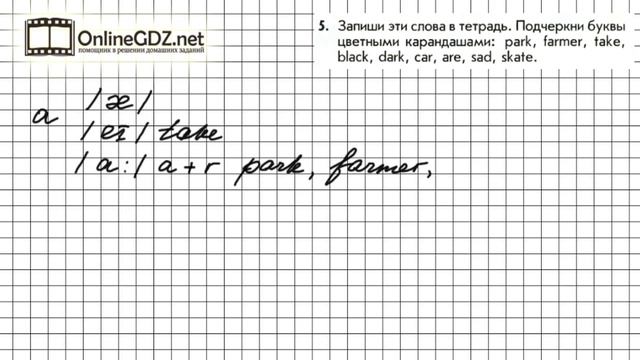 OnlineGDZ.net
помощник в решении домашних заданий
5. Запиши эти слова в тетрадь. Подчеркни буквы
цветными карандашами: park, farmer, take,
black, dark, car, are, sad, skate.
a /æ/
/eɪ/ take
/a:/ a+r park, farmer,